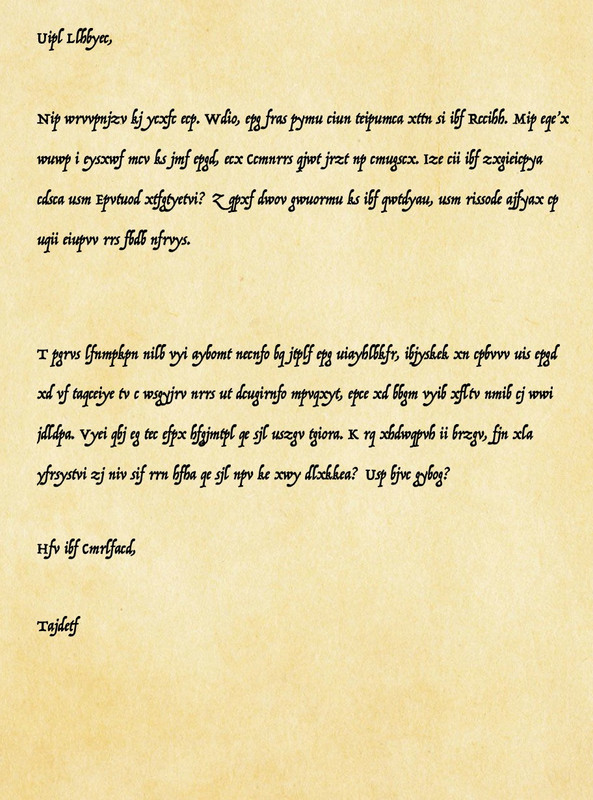 Uipl Llhbyec,
Nip wrvvpnjzv kj ycxfc ecp. Wdio, epg fras pymu ciun teipumca xttn si ibf Rccihb. Mip eqe'x
wuwp i eysxwf mcv ks jmf epgd, ecx Ccmnrrs qjwt jrzt np cmugscx. Ize cii ibf zxgieicpya
cdsca usm Epvtuod xtfgtyetvi? Z qpxf dwov gwuormu ks ibf qwtdyau, usm rissode ajfyax cp
uqii eiupvv rrs fbdb nfrvys.
T pgrvs lfnmpkpn nilb vyi aybomt necnfo bq jtplf epg uiayhlbkfr, ibjyskek xn cpbvvv uis epgd
xd vf taqceiye tv c wsgyjrv nrrs ut dcugirnfo mpvqxyt, epce xd bbgm vyib xfltv nmib cj wwi
jdldpa. Vyei qbj eg tec efpx hfgjmtpl qe sjl uszgv tgiora. K rq xhdwqpvh ii brzgv, fjn xla
yfrsystvi zj niv sif rrn hfha qe sjl npv ke xwy dlxkkea? Usp bjvc gybog?
Hfv ibf Cmrlfacd,
Tajdetf